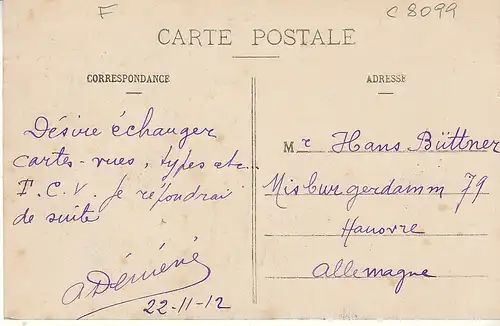 F
C 8099
CARTE POSTALE
CORRESPONDANCE
Désire échanger
cartes-vues, types etc...
T.C.V. Je répondrai
de suite
22-11-12
ADRESSE
Mr Hans Büttner
Misburgerdamm 79
Hanovre
Allemagne